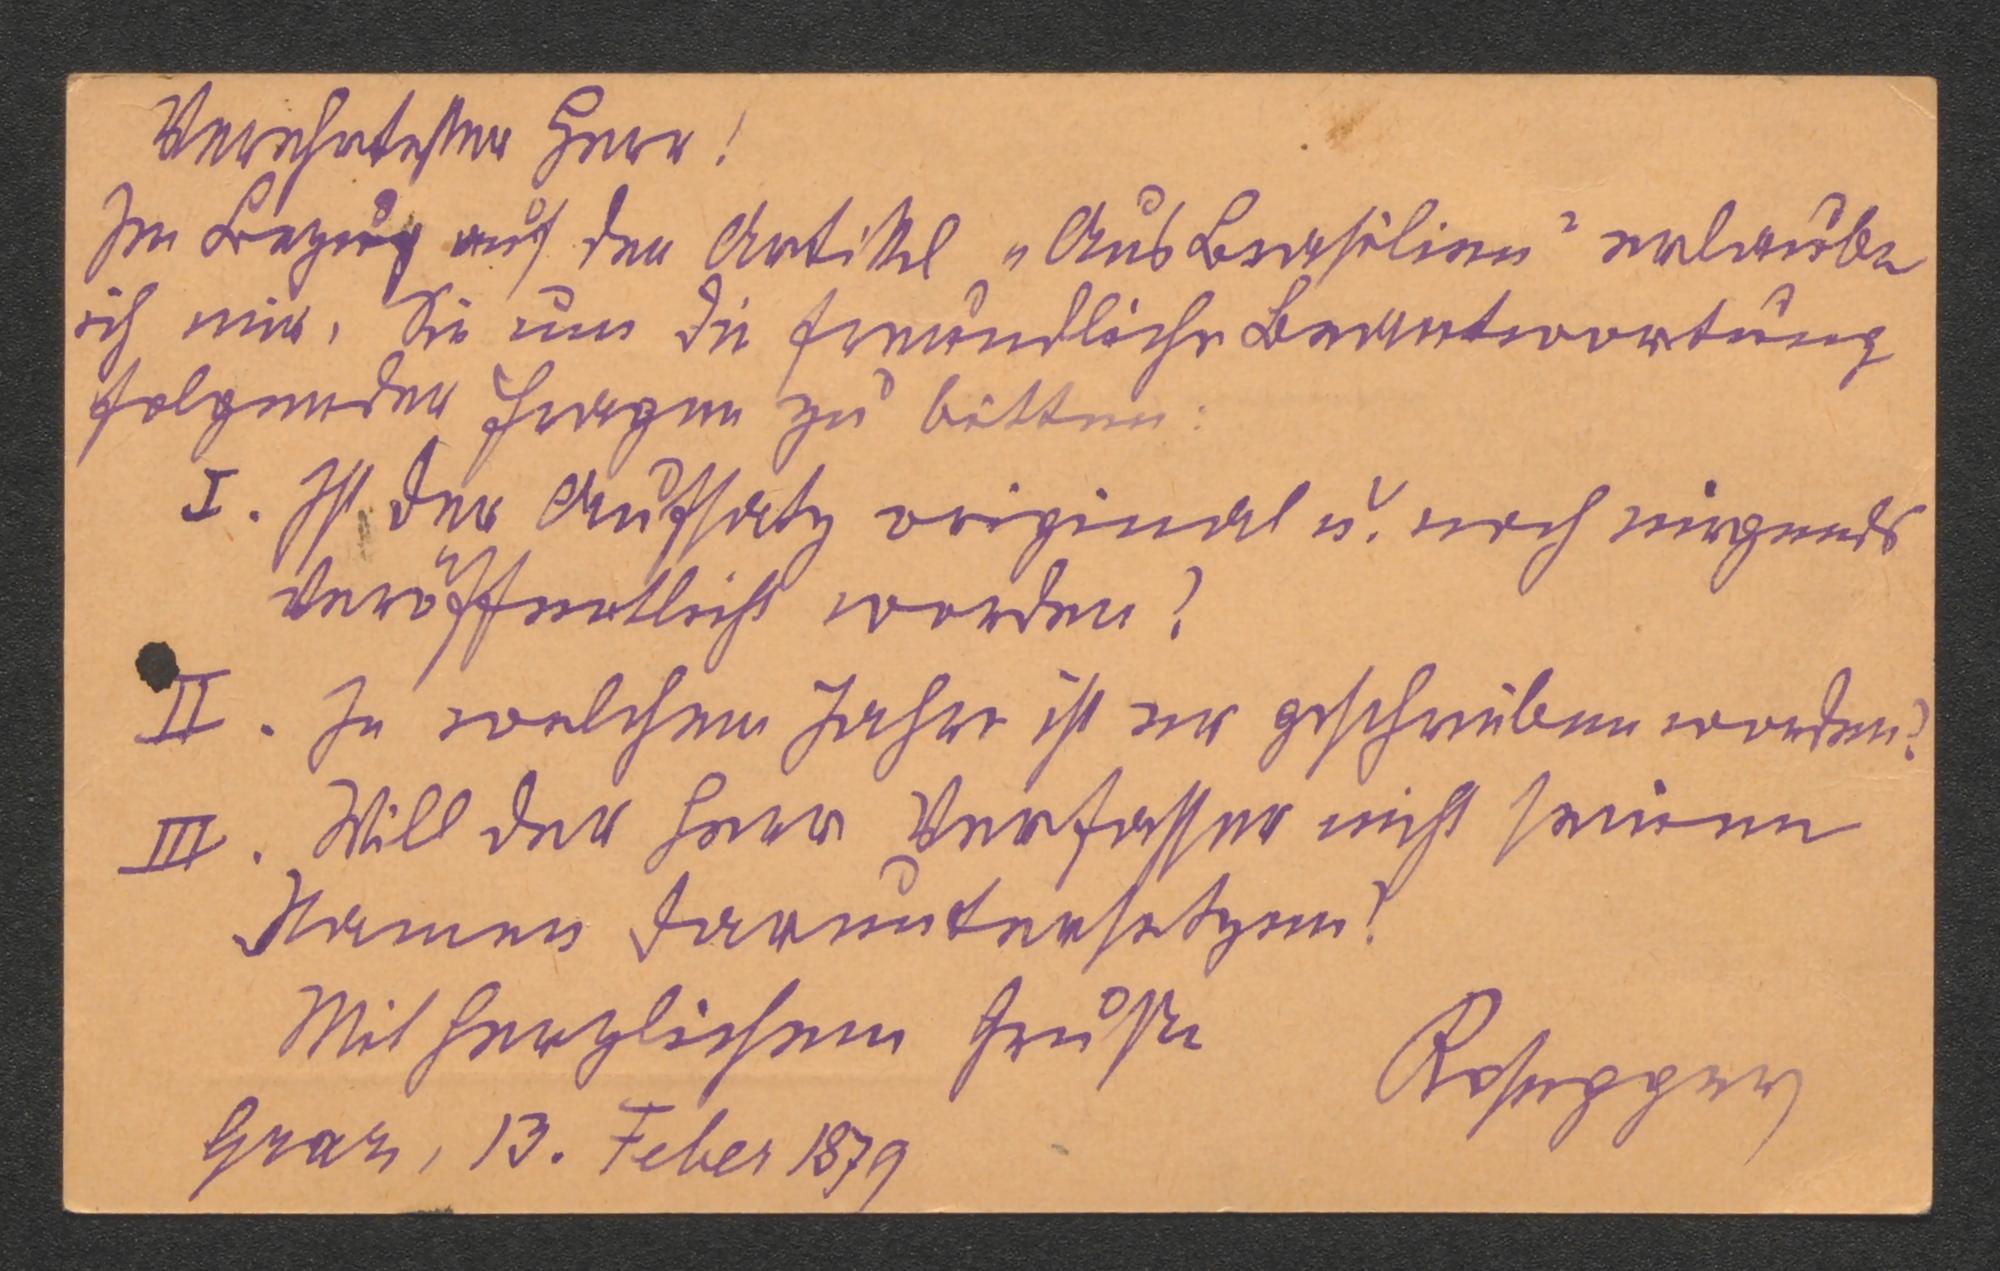 Verehrtester Herr!
In Bezug auf den Artikel „Aus Brasilien" erlaube
ich mir, Sie um die freundliche Beantwortung
folgender Fragen zu bitten:
I. Ist der Aufsatz original u. noch nirgends
veröffentlicht worden?
II. In welchem Jahre ist er geschrieben worden?
III. Will der Herr Verfasser nicht seinen
Namen daruntersetzen?
Mit herzlichem Gruße
Rosegger
Graz, 13. Feber 1879